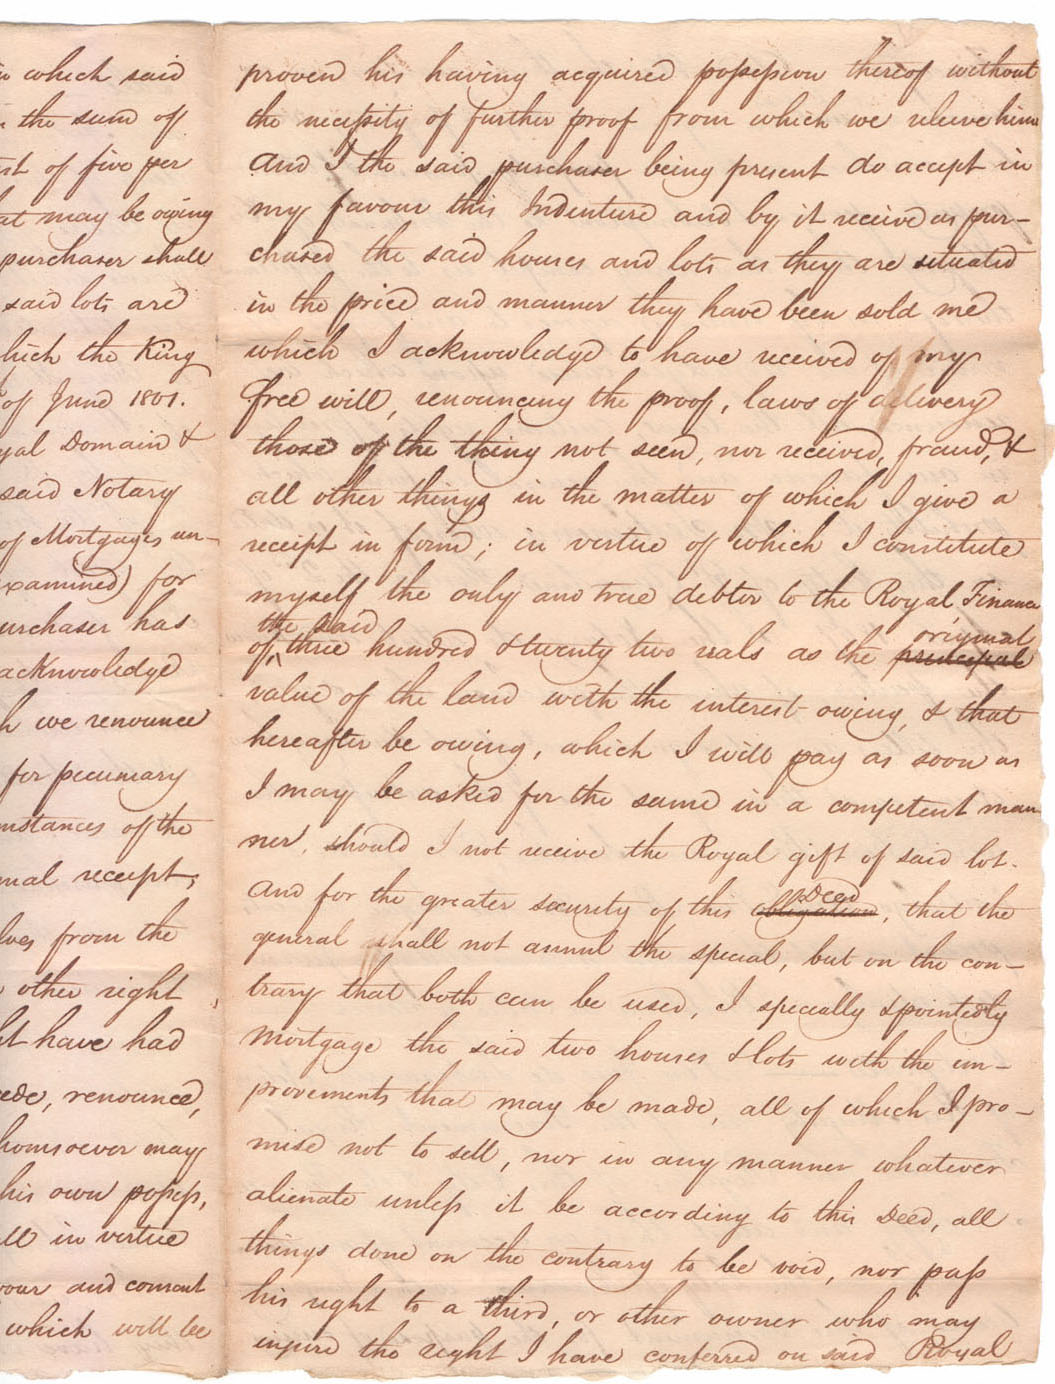 which said
the sum of
of five per
may be owing
purchaser shall
said lots are
the King
of June 1801.
Domain &
said Notary
of Mortgages un-
xamined) for
has
acknowledge
we renounce
for pecuniary
of the
receipt,
from the
other right
have had
renounce,
may
his own possess,
in virtue
and consent
which will be
proven his having acquired possession thereof without
the necessity of further proof from which we releive him
And I the said purchaser being present do accept in
my favour this Indenture and by it receive as pur-
chased the said houses and lots as they are situated
in the price and manner they have been sold me
which I acknowledge to have received of my
free will, renouncing the proof, laws of delivery
those of the thing not seen, nor received, fraud, &
all other things in the matter of which I give a
receipt in form; in vertue of which I constitute
myself the only and true debtor to the Royal Finance
of, the said three hundred & twenty two rials as the principal original
value of the land with the interest owing, & that
hereafter be owing, which I will pay as soon as
I may be asked for the same in a competent man
ner, should I not receive the Royal gift of said lot.
And for the greater security of this obligation Deed, that the
general shall not annul the special, but on the con-
trary that both can be used, I specially & pointedly
Mortgage the said two houses & lots with the im-
provements that may be made, all of which I pro-
mise not to sell, nor in any manner whatever
alienate unless it be according to this Deed, all
things done on the contrary to be void, nor pass
his right to a third, or other owner who may
injure the right I have conferred on said Royal